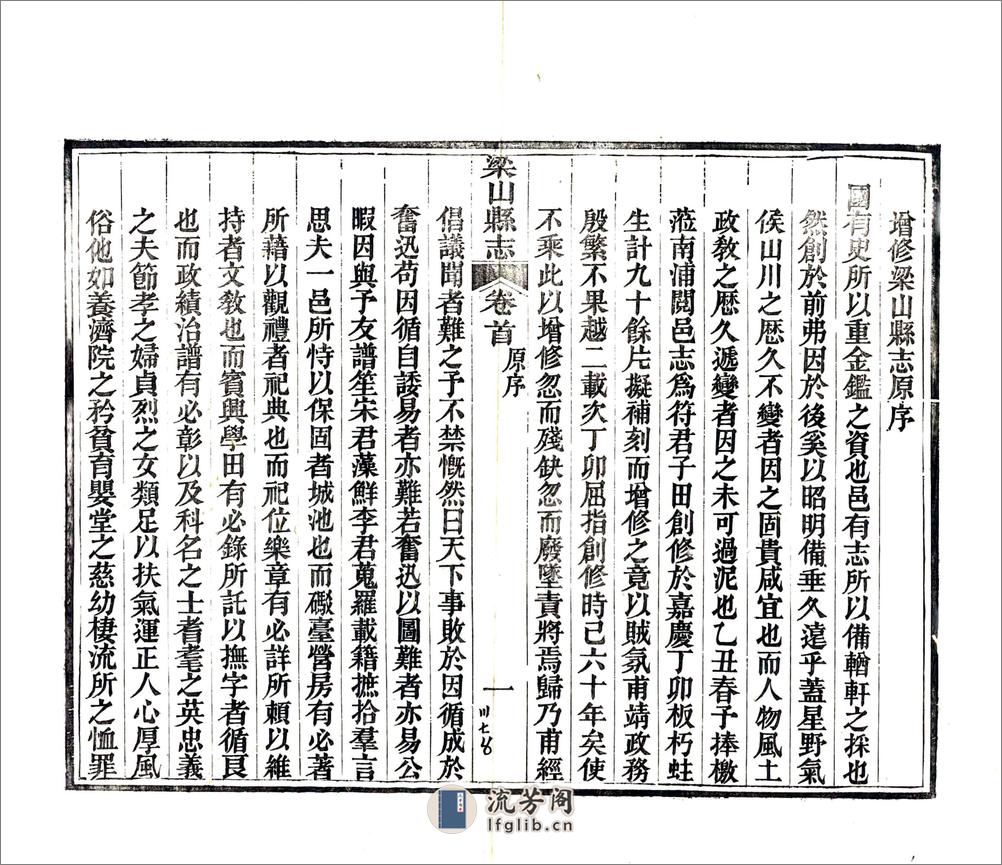 增修梁山縣志原序
國有史所以重金鑑之資也邑有志所以備輶軒之採也
然創於前弗因於後奚以昭明備垂久遠乎蓋星野氣
候山川之歷久不變者因之固貴咸宜也而人物風土
政敎之歷久遞變者因之未可過泥也乙丑春予捧檄
蒞南浦閱邑志爲符君子田創修於嘉慶丁卯板朽蛀
生計九十餘片擬補刻而增修之竟以賊氛甫靖政務
殷繁不果越二載次丁卯屈指創修時已六十年矣使
不乘此以增修忽而殘缺忽而廢墜責將焉歸乃甫經
梁山縣志
卷首
原序
一
倡議聞者難之予不禁慨然曰天下事敗於因循成於
奮迅苟因循自誘易者亦難若奮迅以圖難者亦易公
暇因與予友譜笙宋君藻鮮李君蒐羅載籍摭拾羣言
思夫一邑所恃以保固者城池也而礮臺營房有必著
所藉以觀禮者祀典也而祀位樂章有必詳所頼以維
持者文敎也而賓興學田有必錄所託以撫字者循良
也而政績治譜有必彰以及科名之士耆耄之英忠義
之夫節孝之婦貞烈之女類足以扶氣運正人心厚風
俗他如養濟院之矜貧育嬰堂之慈幼棲流所之恤罪
流芳阁
lfglib.cn